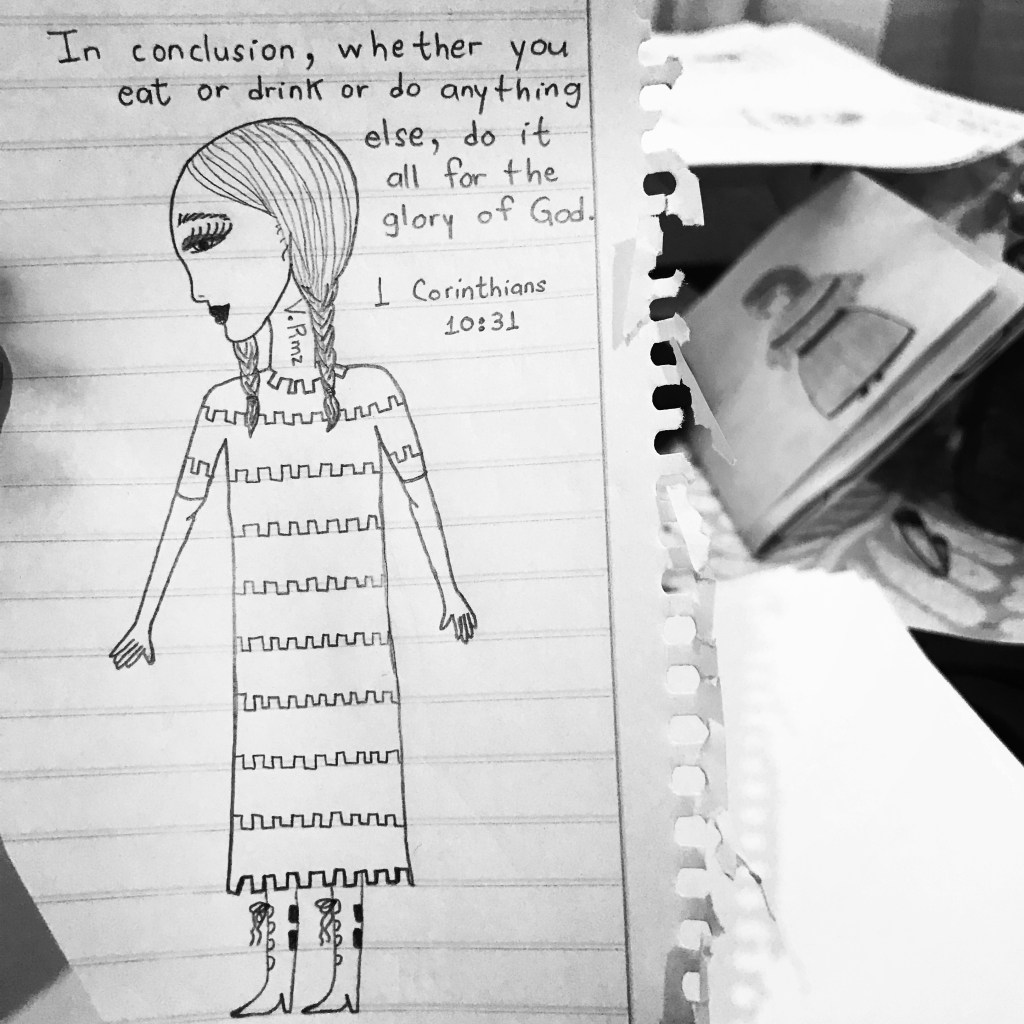 In conclusion, whether you
eat or drink or do anything
else, do it
all for the
glory of God.
1 Corinthians
10:31
V. Rmz